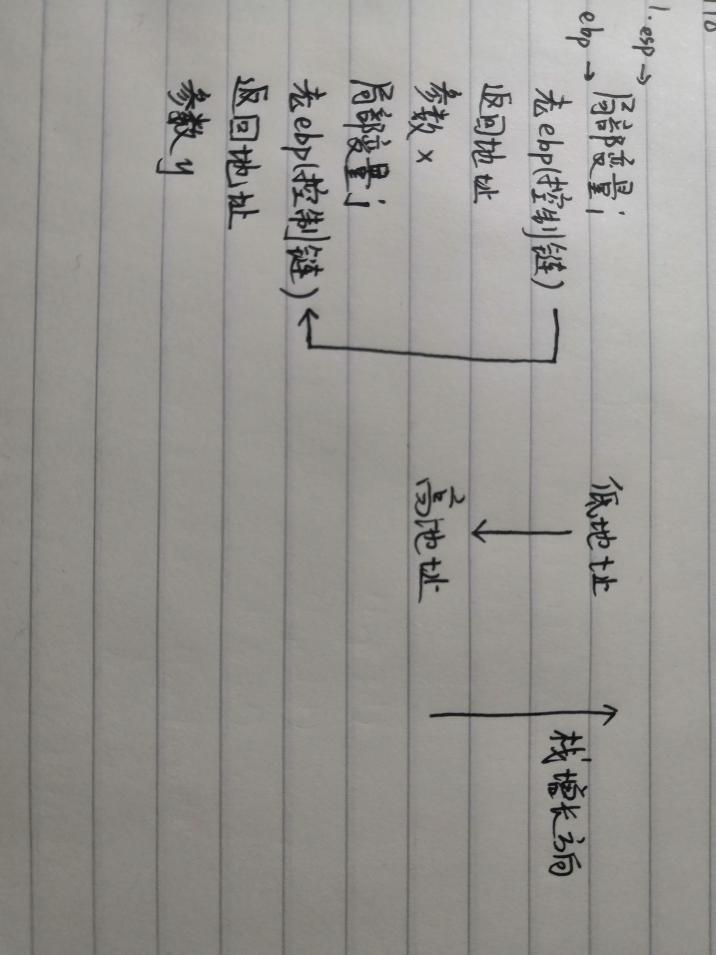 1. esp →
局部变量i
ebp →
老ebp(控制链)
返回地址
参数x
局部变量j
老ebp(控制链)
返回地址
参数y
低地址
高地址
栈增长方向